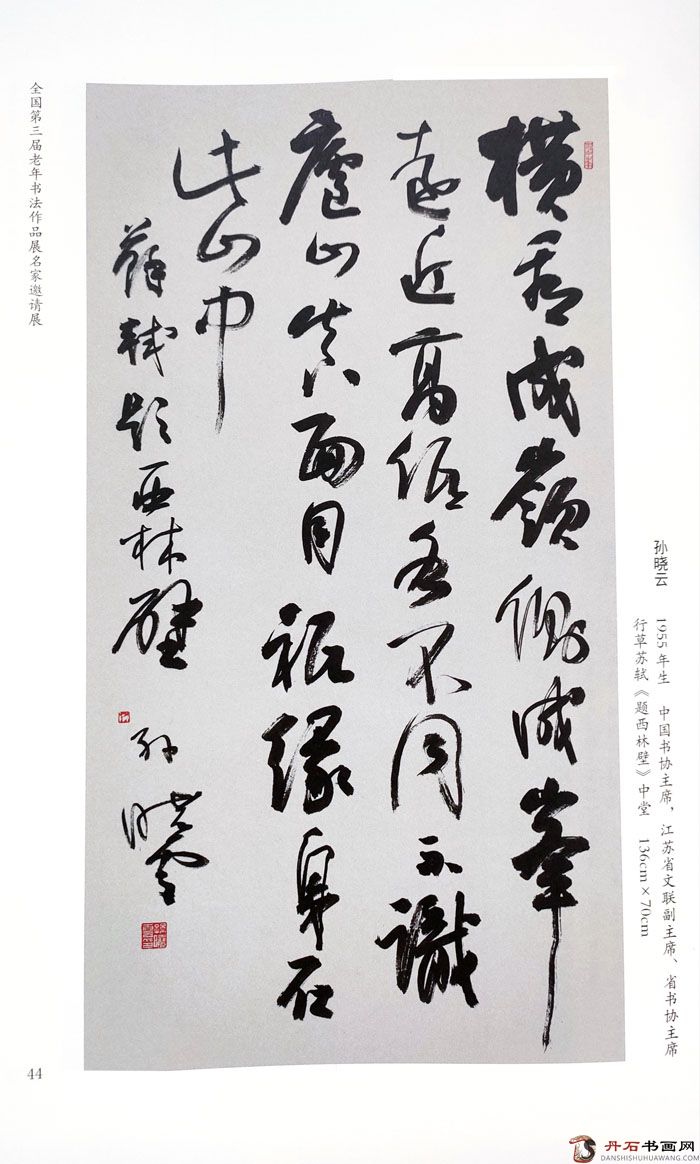 孙晓云 1955年生 中国书协主席，江苏省文联副主席、省书协主席
行草苏轼《题西林壁》中堂 136cm×70cm
橫看成嶺側成峯
遠近高低各不同不識
廬山真面目祇緣身在
此山中
蘇軾題西林壁 孫曉雲
全国第三届老年书法作品展名家邀请展
44
丹石书画网
DANSHISHUHUAWANG.COM